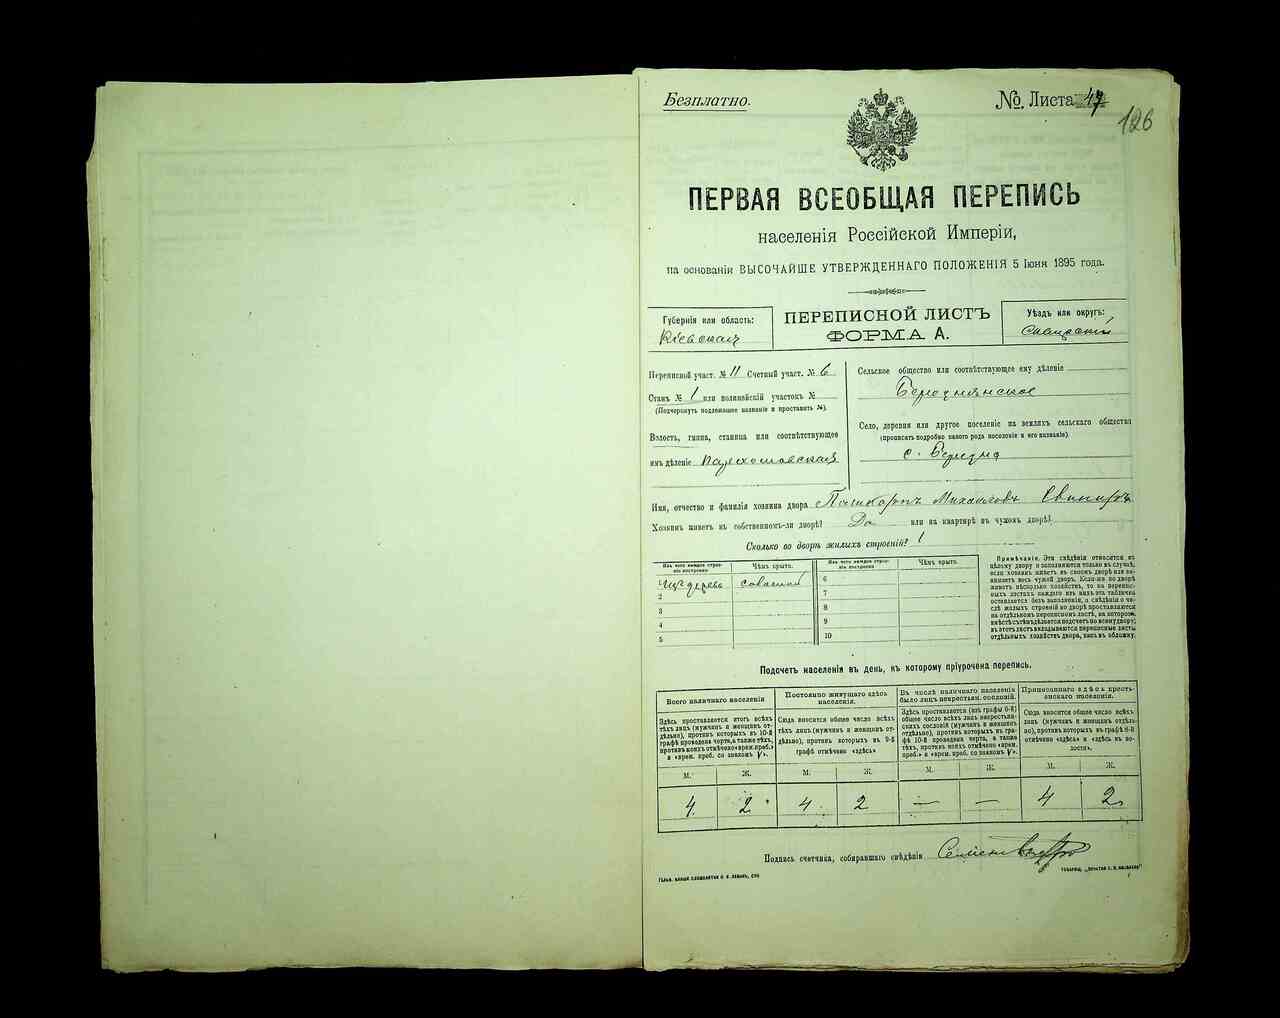 Безплатно.
№ Листа 47
126
ПЕРВАЯ ВСЕОБЩАЯ ПЕРЕПИСЬ
населенія Россійской Имперіи,
на основаніи ВЫСОЧАЙШЕ УТВЕРЖДЕННАГО ПОЛОЖЕНІЯ 5 Іюня 1895 года.
Губернія или область:
Кіевская
ПЕРЕПИСНОЙ ЛИСТЪ
ФОРМА А.
Уѣздъ или округъ:
Сквирскій
Переписной участ. № 11 Счетный участ. № 6
Станъ № 1 или полицейскій участокъ №
(Подчеркнуть подлежащее названіе и проставить №).
Волость, гмина, станица или соотвѣтствующее
имъ дѣленіе
Сельское общество или соотвѣтствующее ему дѣленіе
Березнянское
Село, деревня или другое поселеніе на земляхъ сельскаго общества
(прописать подробно какого рода поселеніе и его названіе)
с. Березна
Имя, отчество и фамилія хозяина двора Михайловъ
Хозяинъ живетъ въ собственномъ-ли дворѣ? Да или на квартирѣ въ чужомъ дворѣ?
Сколько во дворѣ жилыхъ строеній? 1
Изъ чего каждое строеніе построено
Чѣмъ крыто.
Изъ чего каждое строеніе построено
Чѣмъ крыто.
1 Изъ дерева соломой
2
3
4
5
6
7
8
9
10
Примѣчаніе. Эти свѣдѣнія относятся къ
цѣлому двору и заполняются только въ случаѣ,
если хозяинъ живетъ въ своемъ дворѣ или занимаетъ
весь чужой дворъ. Если-же во дворѣ
живетъ нѣсколько хозяйствъ, то на переписныхъ
листахъ каждаго изъ нихъ эта табличка
оставляется безъ заполненія, а свѣдѣнія о числѣ
жилыхъ строеній во дворѣ проставляются
на отдѣльномъ переписномъ листѣ, на которомъ
вмѣстѣ съ тѣмъ дѣлается подсчетъ по всему двору;
въ этотъ листъ вкладываются переписные листы
отдѣльныхъ хозяйствъ двора, какъ въ обложку.
Подсчетъ населенія въ день, къ которому пріурочена перепись.
Всего наличнаго населенія
Постоянно живущаго здѣсь населенія.
Въ числѣ наличнаго населенія было лицъ некрестьян. сословій.
Приписаннаго здѣсь крестьянскаго населенія.
Здѣсь проставляется итогъ всѣхъ
тѣхъ лицъ (мужчинъ и женщинъ отдѣльно),
противъ которыхъ въ 10-й
графѣ проведена черта, а также тѣхъ,
противъ коихъ отмѣчено «врем. преб.»
и «врем. преб. со знакомъ V».
Сюда вносится общее число всѣхъ
тѣхъ лицъ (мужчинъ и женщинъ отдѣльно),
противъ которыхъ въ 9-й
графѣ отмѣчено «здѣсь»
Здѣсь проставляется (изъ графы 6-й)
общее число всѣхъ лицъ некрестьянскихъ
сословій (мужчинъ и женщинъ
отдѣльно), противъ которыхъ въ графѣ
10-й проведена черта, а также
тѣхъ, противъ коихъ отмѣчено «врем.
преб.» и «врем. преб. со знакомъ V».
Сюда вносится общее число всѣхъ
лицъ (мужчинъ и женщинъ отдѣльно),
противъ которыхъ въ графѣ 8-й
отмѣчено «здѣсь» и «здѣсь въ волости».
М. Ж. М. Ж. М. Ж. М. Ж.
4 2 4 2 — — 4 2
Подпись счетчика, собиравшаго свѣдѣнія